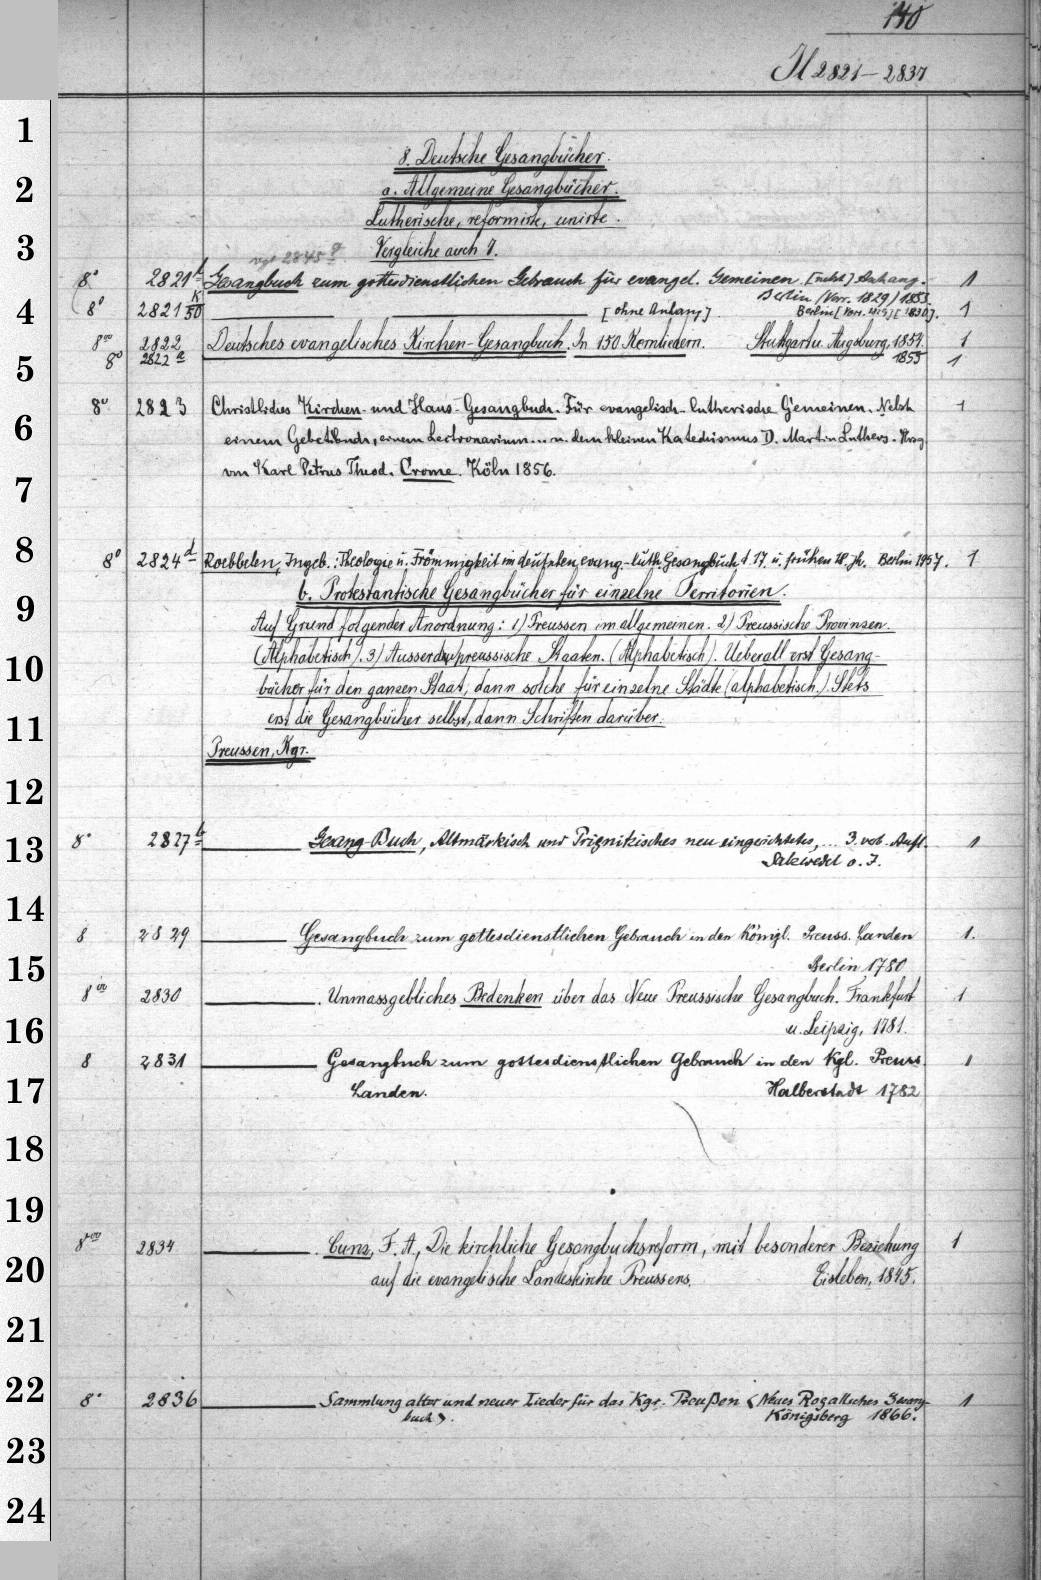 140
Il 2821 – 2837
8. Deutsche Gesangbücher.
a. Allgemeine Gesangbücher.
Lutherische, reformirte, unirte.
Vergleiche auch 7.
vgl 2845 a
8° 2821 b Gesangbuch zum gottesdienstlichen Gebrauch für evangel. Gemeinen. [nebst] Anhang. 1
Berlin (Vorr. 1829) 1853.
8° 2821 k/50 [ohne Anhang]. Berlin [Vorr. 1829] [1830]. 1
8vo 2822 Deutsches evangelisches Kirchen-Gesangbuch. In 150 Kernliedern. Stuttgart u. Augsburg, 1854. 1
8° 2822 a 1855 1
8° 2823 Christliches Kirchen- und Haus-Gesangbuch. Für evangelisch-lutherische Gemeinen. Nebst 1
einem Gebetbuch, einem Lectionarium... u. dem kleinen Katechismus D. Martin Luthers. Hrsg
von Karl Petrus Theod. Crome. Köln 1856.
8° 2824 d Roebbelen, Ingeb.: Theologie u. Frömmigkeit im deutschen evang.-luth. Gesangbuch d. 17. u. frühen 18. Jh. Berlin 1957. 1
b. Protestantische Gesangbücher für einzelne Territorien.
Auf Grund folgender Anordnung: 1) Preussen im allgemeinen. 2) Preussische Provinzen.
(Alphabetisch). 3) Ausserdem preussische Staaten. (Alphabetisch). Ueberall erst Gesang-
bücher für den ganzen Staat, dann solche für einzelne Städte (alphabetisch). Stets
erst die Gesangbücher selbst, dann Schriften darüber.
Preussen, Kgr.
8° 2827 b Gesang-Buch, Altmärkisch und Prignitzisches neu eingerichtetes, ... 3. verb. Aufl. 1
Salzwedel o. J.
8 2829 Gesangbuch zum gottesdienstlichen Gebrauch in den Königl. Preuss. Landen 1.
Berlin, 1780
8vo 2830 . Unmassgebliches Bedenken über das Neue Preussische Gesangbuch. Frankfurt 1
u. Leipzig, 1781.
8 2831 Gesangbuch zum gottesdienstlichen Gebrauch in den Kgl. Preuss. 1
Landen. Halberstadt 1782
8vo 2834 . Cunz, F. A., Die kirchliche Gesangbuchsreform, mit besonderer Beziehung 1
auf die evangelische Landeskirche Preussens. Eisleben, 1845.
8° 2836 Sammlung alter und neuer Lieder für das Kgr. Preußen (Neues Rogallsches Gesang- 1
buch). Königsberg 1866.
1
2
3
4
5
6
7
8
9
10
11
12
13
14
15
16
17
18
19
20
21
22
23
24